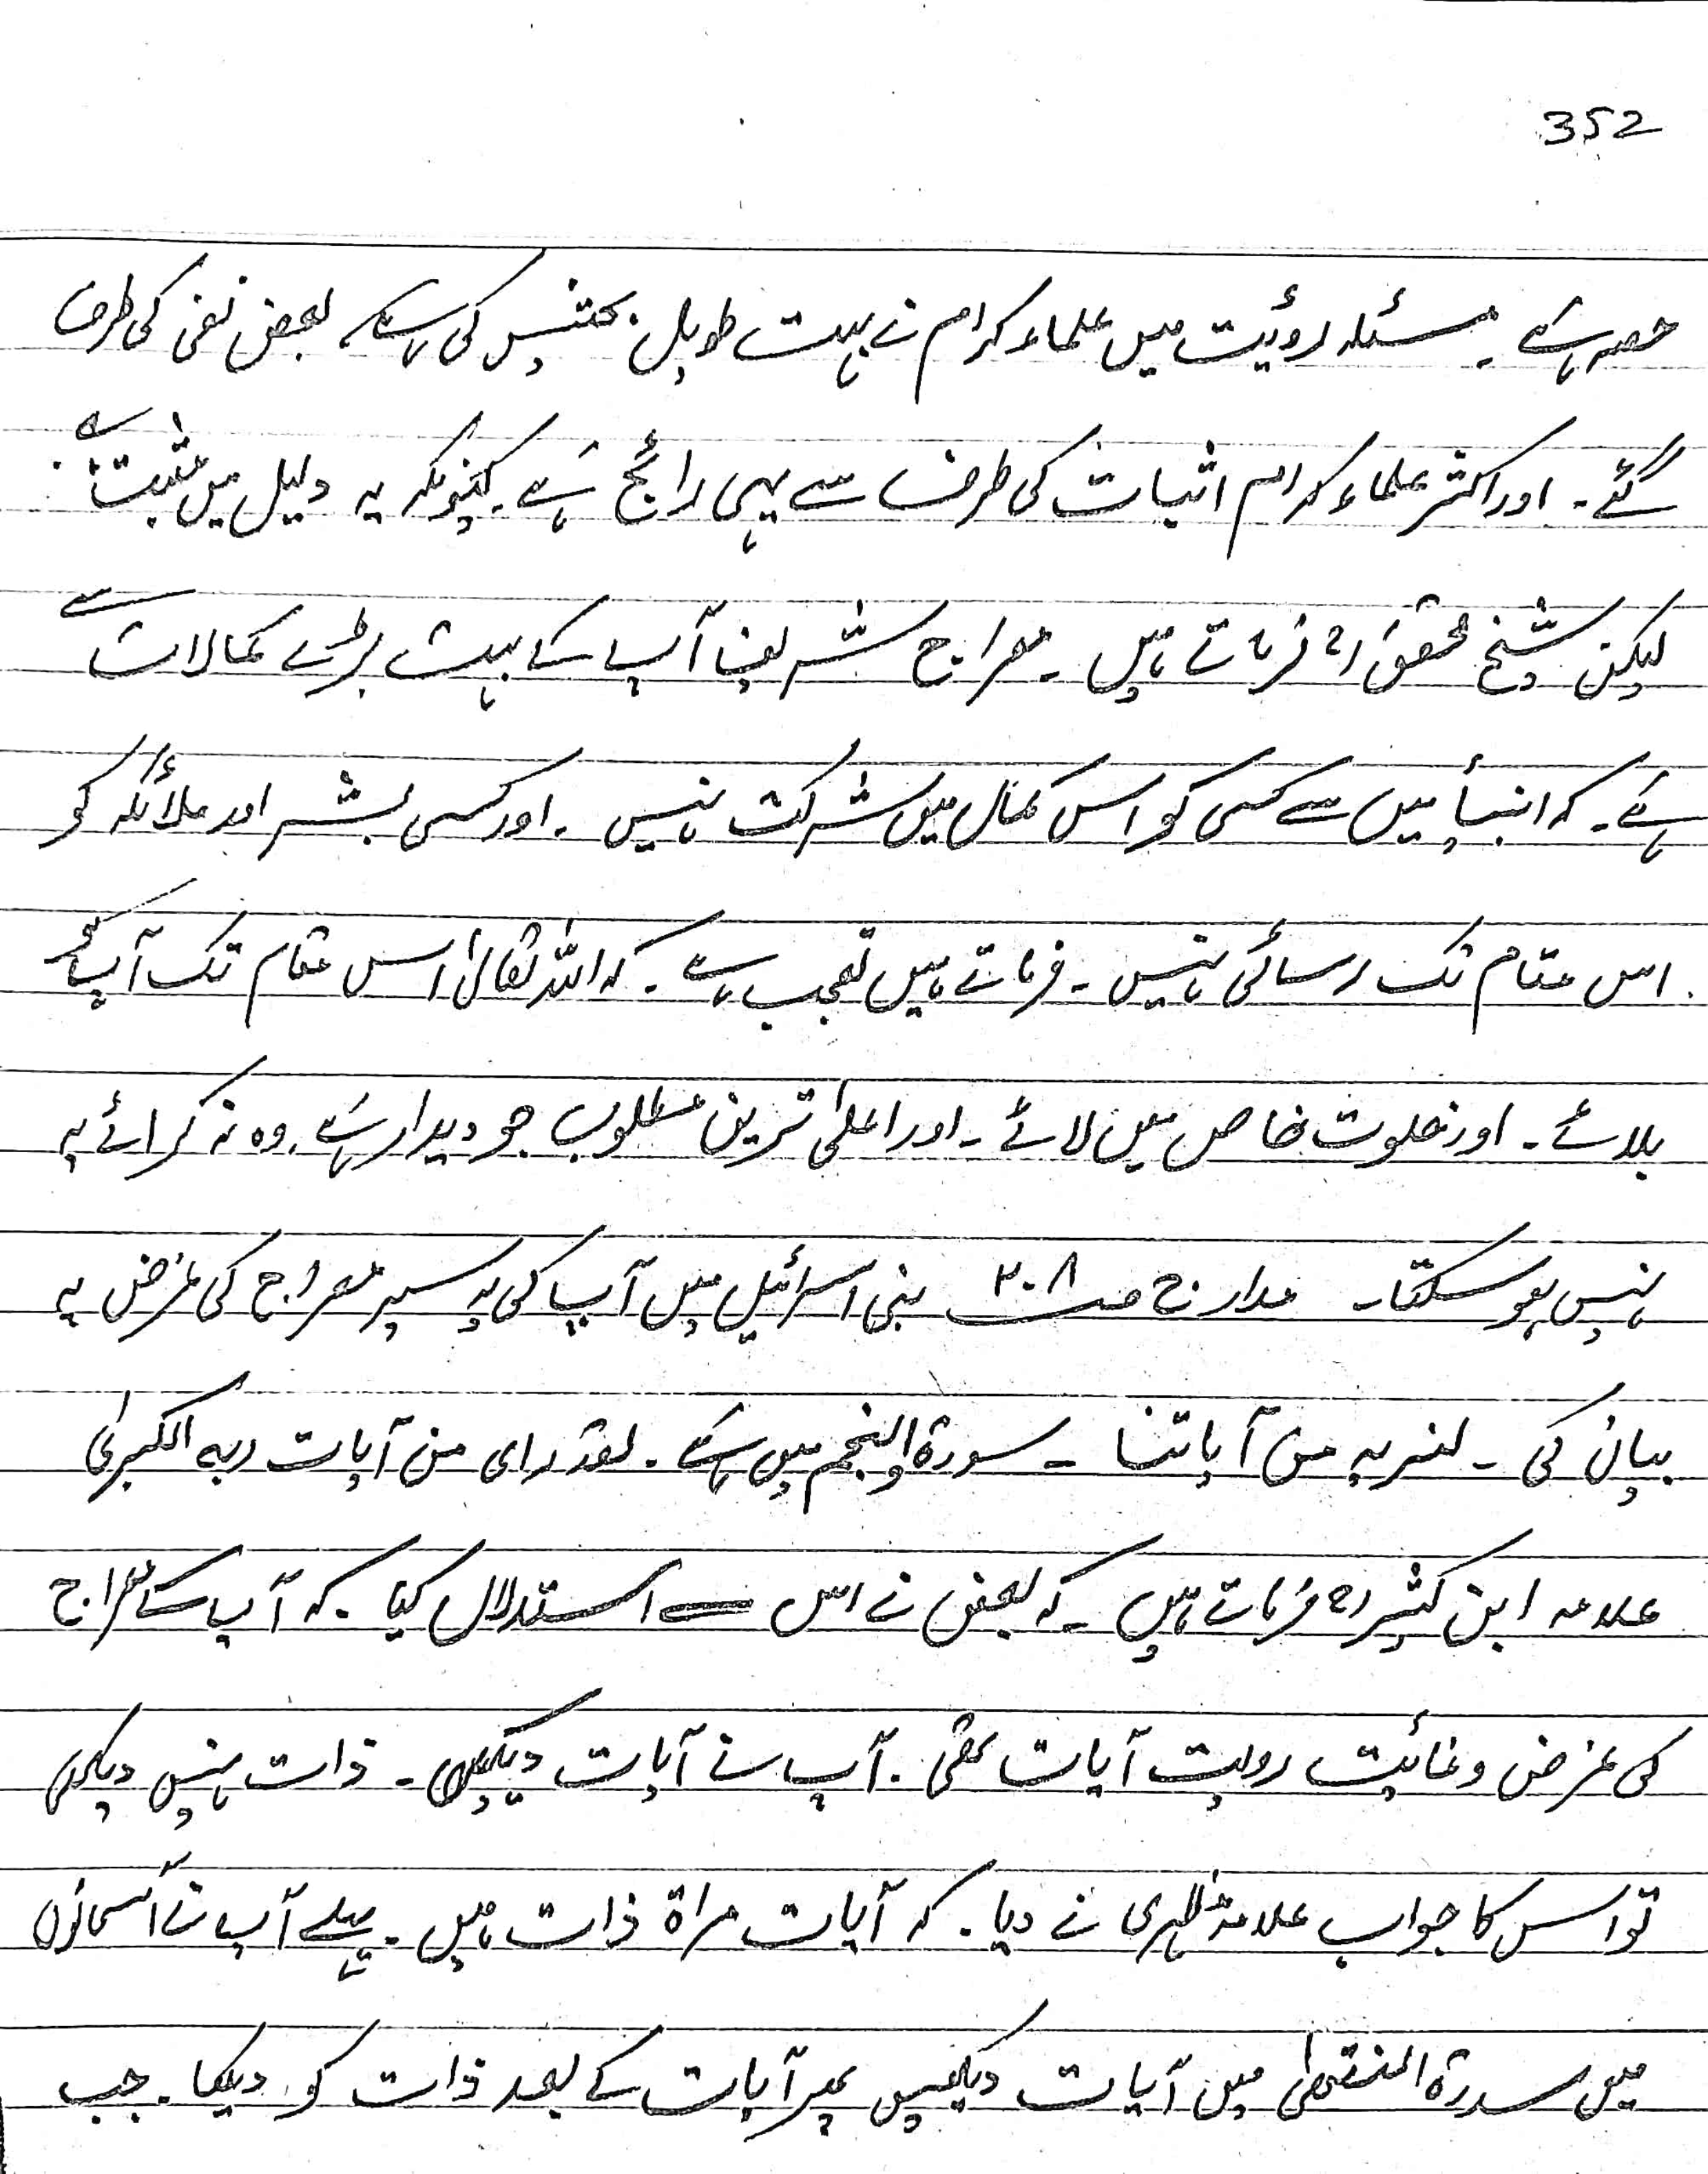 352
حصہ ہے۔ مسئلہ رؤیت میں علماء کرام نے بہت طویل بحثیں کی ہے۔ بعض نفی کی طرف
گئے۔ اور اکثر علماء کرام اثبات کی طرف سے یہی رائج ہے۔ کیونکہ یہ دلیل میں مثبت ہے
لیکن شیخ محقق رح فرماتے ہیں۔ معراج شریف آپ کے بہت بڑے کمالات سے
ہے۔ کہ انبیأ میں سے کسی کو اس کمال میں شرکت نہیں۔ اور کسی بشر اور ملائکہ کو
اس مقام تک رسائی نہیں۔ فرماتے ہیں تعجب ہے۔ کہ اللہ تعالیٰ اس مقام تک آپ کو
بلائے۔ اور خلوت خاص میں لائے۔ اور اعلیٰ ترین مطلوب جو دیدار ہے۔ وہ نہ کرائے یہ
نہیں ہو سکتا۔ مدارج صـ ۲۰۸ بنی اسرائیل میں آپ کی یہ سیر معراج کی غرض یہ
بیان کی۔ لنریہ من آیاتنا ۔ سورۃ والنجم میں ہے۔ لقد رای من آیات ربہ الکبریٰ
علامہ ابن کثیر رح فرماتے ہیں۔ کہ بعض نے اس سے استدلال کیا۔ کہ آپ کے معراج
کی غرض و غائیت رویت آیات تھی۔ آپ نے آیات دیکھی۔ ذات نہیں دیکھی
تو اس کا جواب علامہ مظہری نے دیا۔ کہ آیات مراۃ ذات ہیں۔ پہلے آپ نے آسمانوں
میں سدرۃ المنتھیٰ میں آیات دیکھیں پھر آیات کے بعد ذات کو دیکھا۔ جب